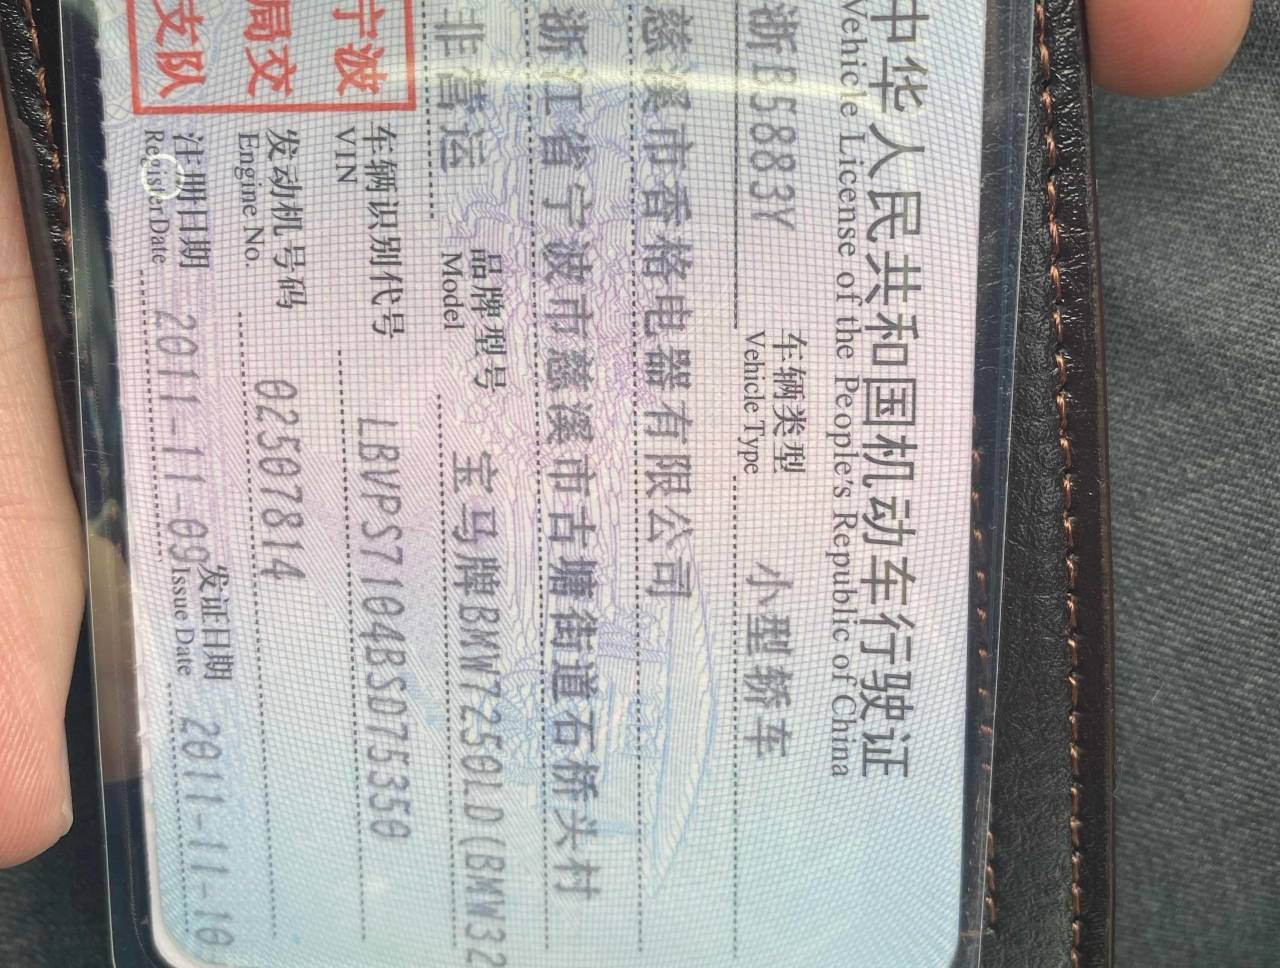 中华人民共和国机动车行驶证
Vehicle License of the People's Republic of China
浙B5883Y
车辆类型
Vehicle Type
小型轿车
慈溪市香格电器有限公司
浙江省宁波市慈溪市古塘街道石桥头村
非营运
品牌型号
Model
宝马牌BMW7250LD(BMW32
宁波
局交
支队
车辆识别代号
VIN
LBVPS7104BSD75350
发动机号码
Engine No.
02507814
注册日期
Register Date
2011-11-09
发证日期
Issue Date
2011-11-10